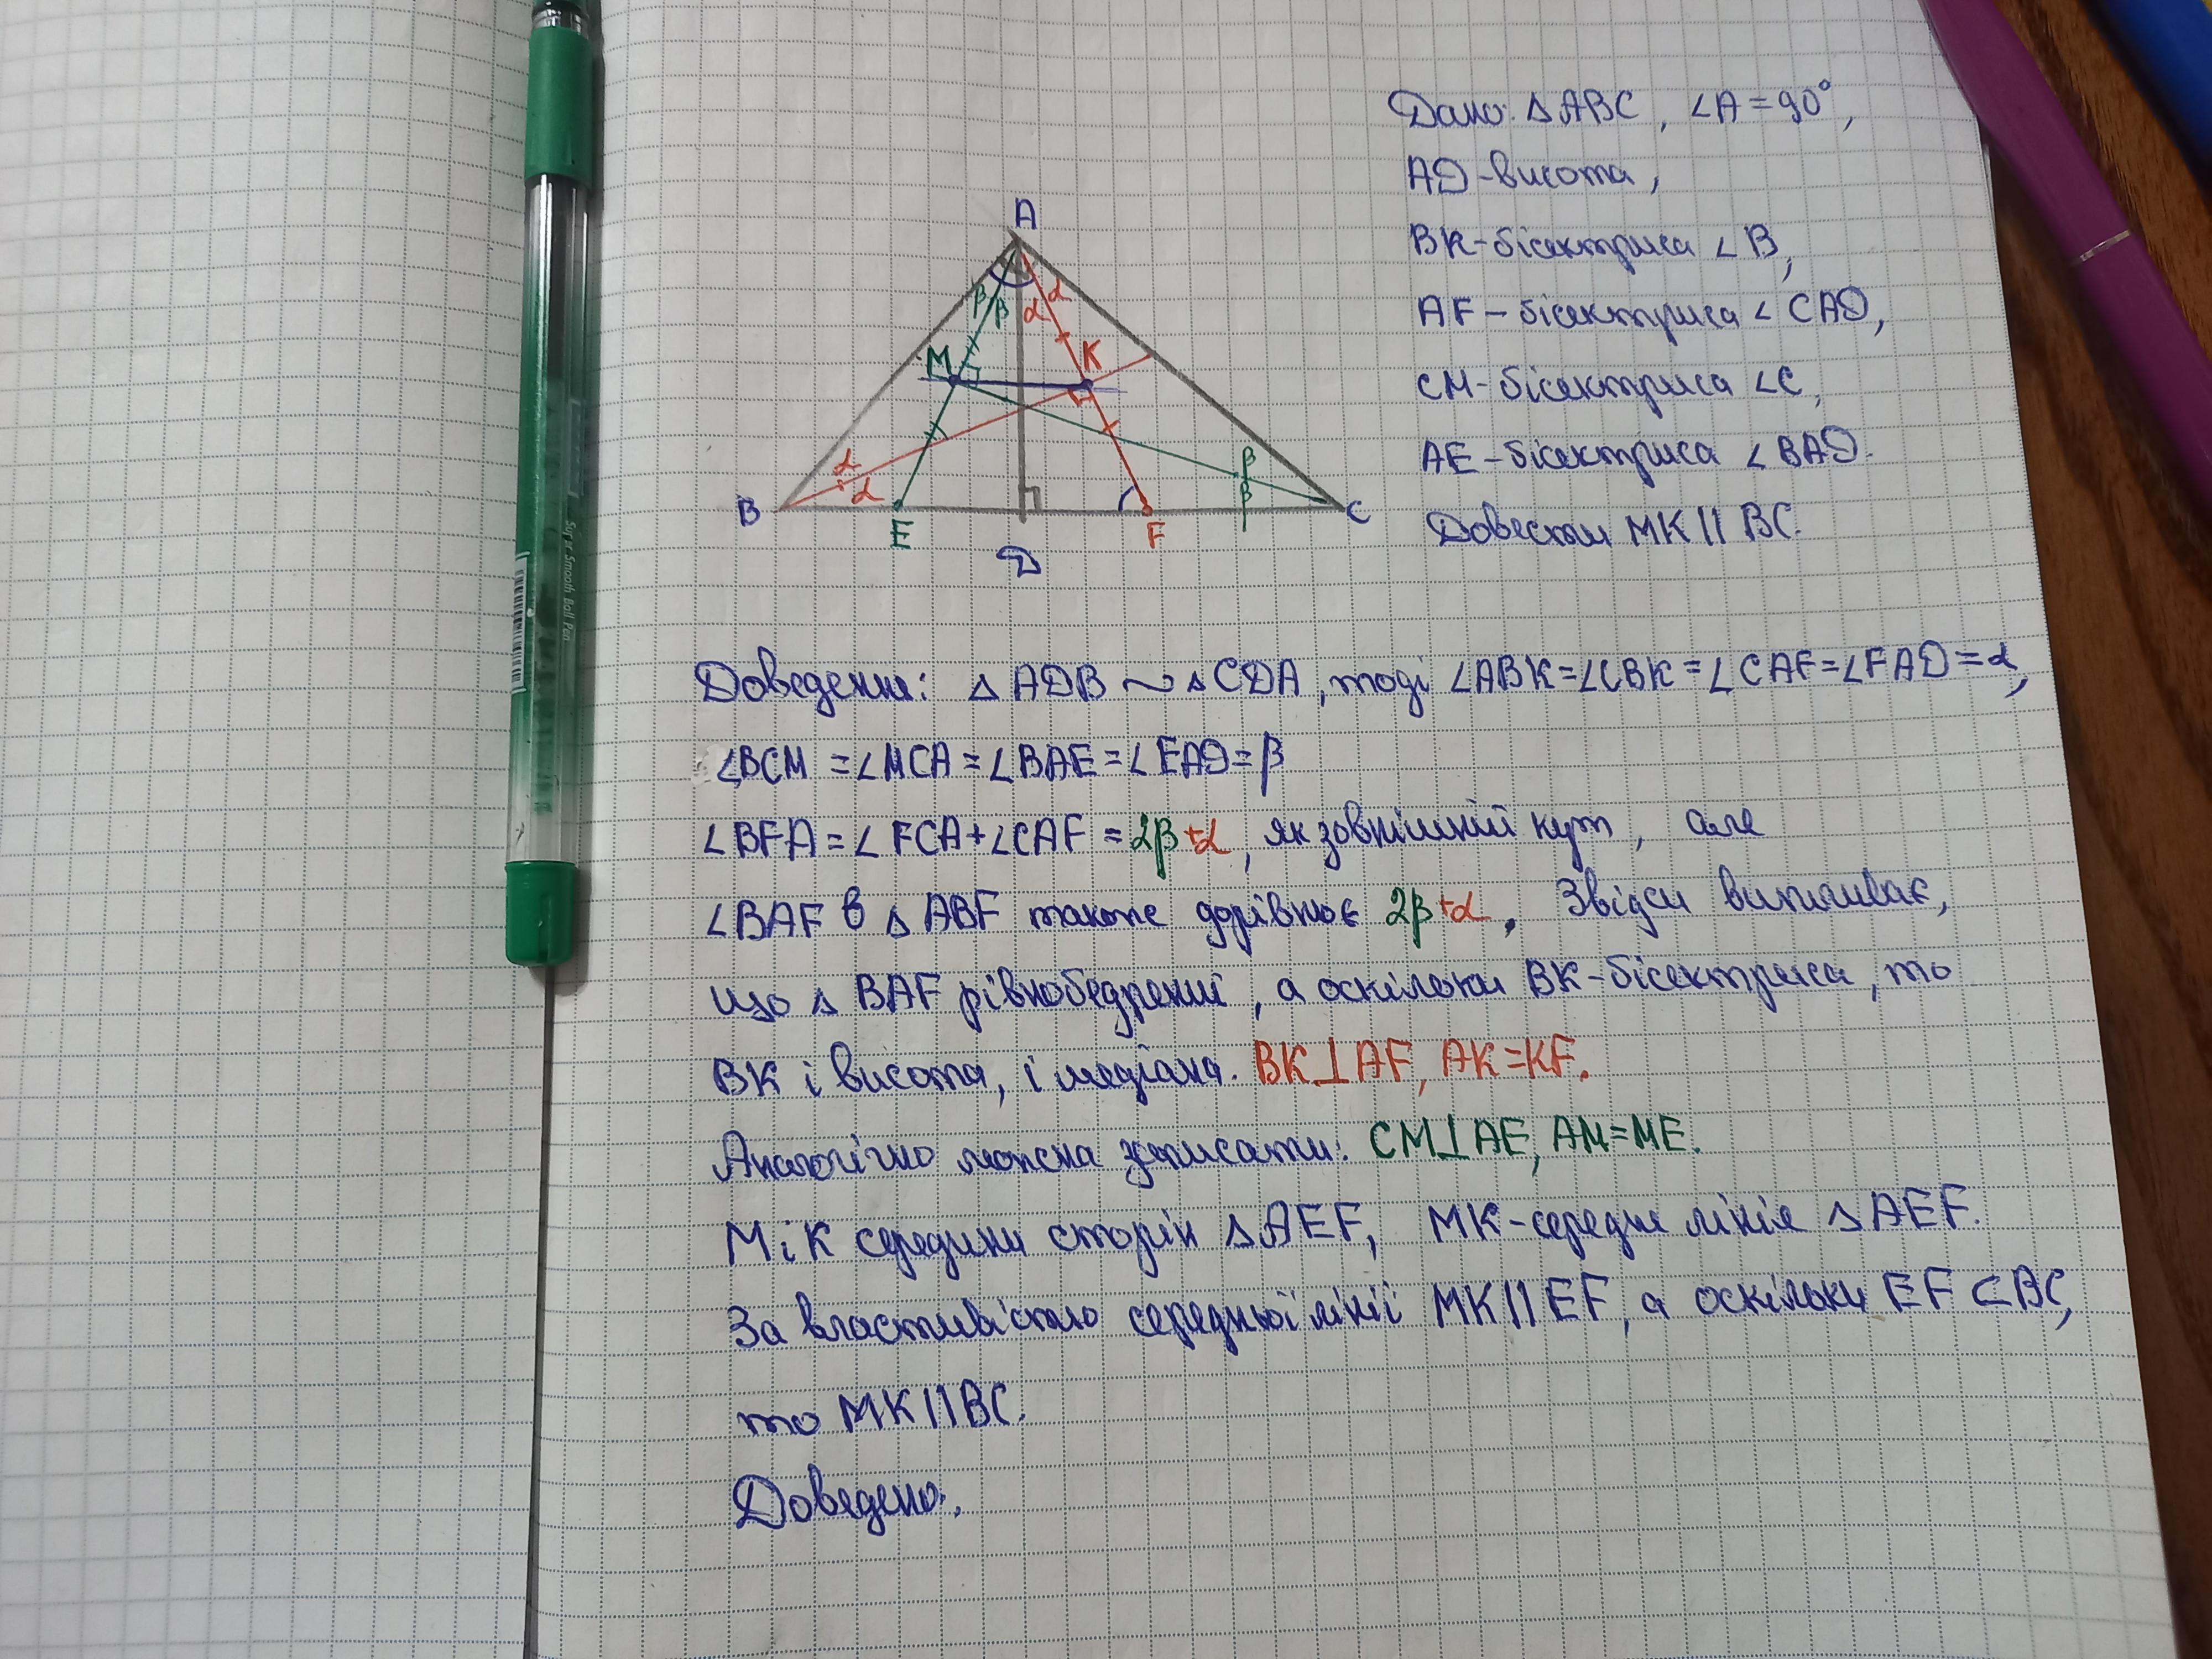 Дано: △ABC, ∠A=90°,
AD-висота,
BK-бісектриса ∠B,
AF-бісектриса ∠CAD,
CM-бісектриса ∠C,
AE-бісектриса ∠BAD.
Довести MK||BC.
A
β β α α
M K
α α
β β
B E D F C
Super Smooth Ball Pen
Доведення: △ADB ~ △CDA, тоді ∠ABK=∠CBK=∠CAF=∠FAD=α,
∠BCM=∠MCA=∠BAE=∠EAD=β
∠BFA=∠FCA+∠CAF=2β+α, як зовнішній кут, але
∠BAF в △ABF також дорівнює 2β+α. Звідси випливає,
що △BAF рівнобедрений, а оскільки BK-бісектриса, то
BK і висота, і медіана. BK⊥AF, AK=KF.
Аналогічно можна записати: CM⊥AE, AM=ME.
M і K середини сторін △AEF, MK-середня лінія △AEF.
За властивістю середньої лінії MK||EF, а оскільки EF⊂BC,
то MK||BC.
Доведено.